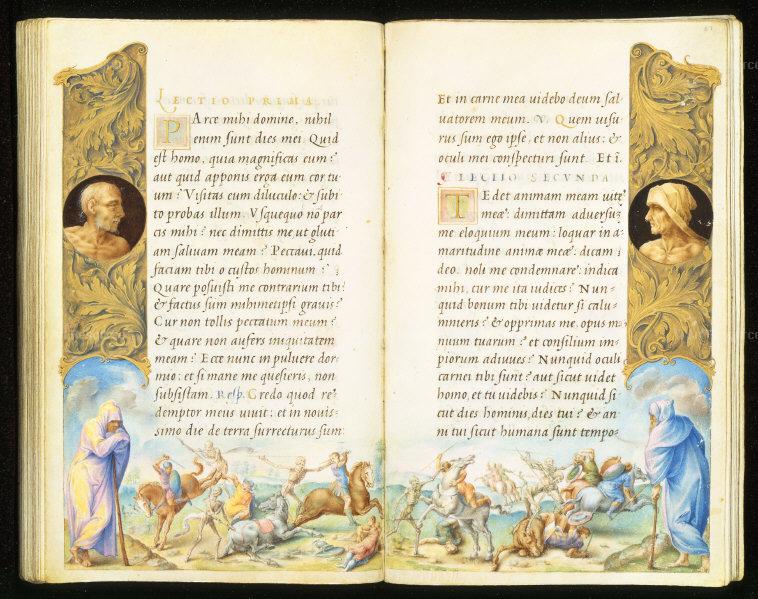 LECTIO PRIMA
PArce mihi domine, nihil
enim sunt dies mei. Quid
est homo, quia magnificas eum?
aut quid apponis erga eum cor tu-
um? Visitas eum diluculo: & subi
to probas illum. Usquequo nō par
cis mihi? nec dimittis me ut gluti
am salivam meam? Peccavi. quid
faciam tibi o custos hominum?
Quare posuisti me contrarium tibi:
& factus sum mihimetipsi gravis?
Cur non tollis peccatum meum?
& quare non aufers iniquitatem
meam? Ecce nunc in pulvere dor-
mio: et si mane me quesieris, non
subsistam. Resp. Credo quod re-
demptor meus vivit: et in novis-
simo die de terra surrecturus sum:
Et in carne mea videbo deum sal-
vatorem meum. V. Quem visu-
rus sum ego ipse, et non alius: &
oculi mei conspecturi sunt. Et ī.
LECTIO SECVNDA
TEdet animam meam vitę
meæ: dimittam adversuz
me eloquium meum: loquar in a-
maritudine animæ meæ: dicam
deo. noli me condemnare: indica
mihi, cur me ita iudices? Nun-
quid bonum tibi videtur si calu-
mnieris? & opprimas me, opus ma-
nuum tuarum? et consilium im-
piorum adiuves? Nunquid oculi
carnei tibi sunt? aut sicut videt
homo, et tu videbis? Nunquid si-
cut dies hominis, dies tui? & an-
ni tui sicut humana sunt tempo-